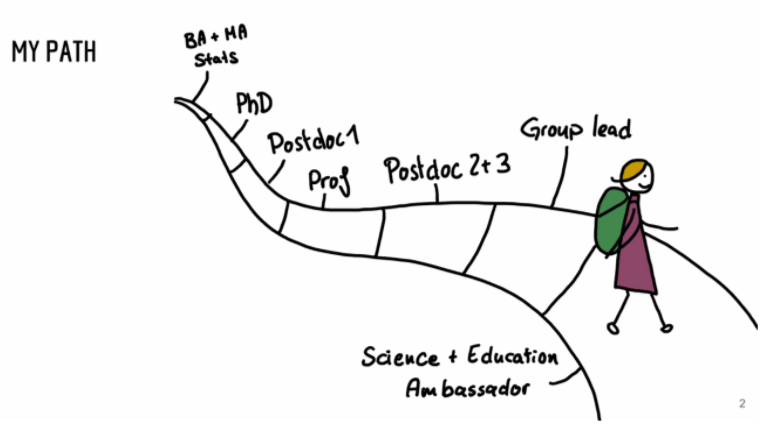 MY PATH
BA + MA
Stats
PhD
Postdoc 1
Prof
Postdoc 2+3
Group lead
Science + Education
Ambassador
2